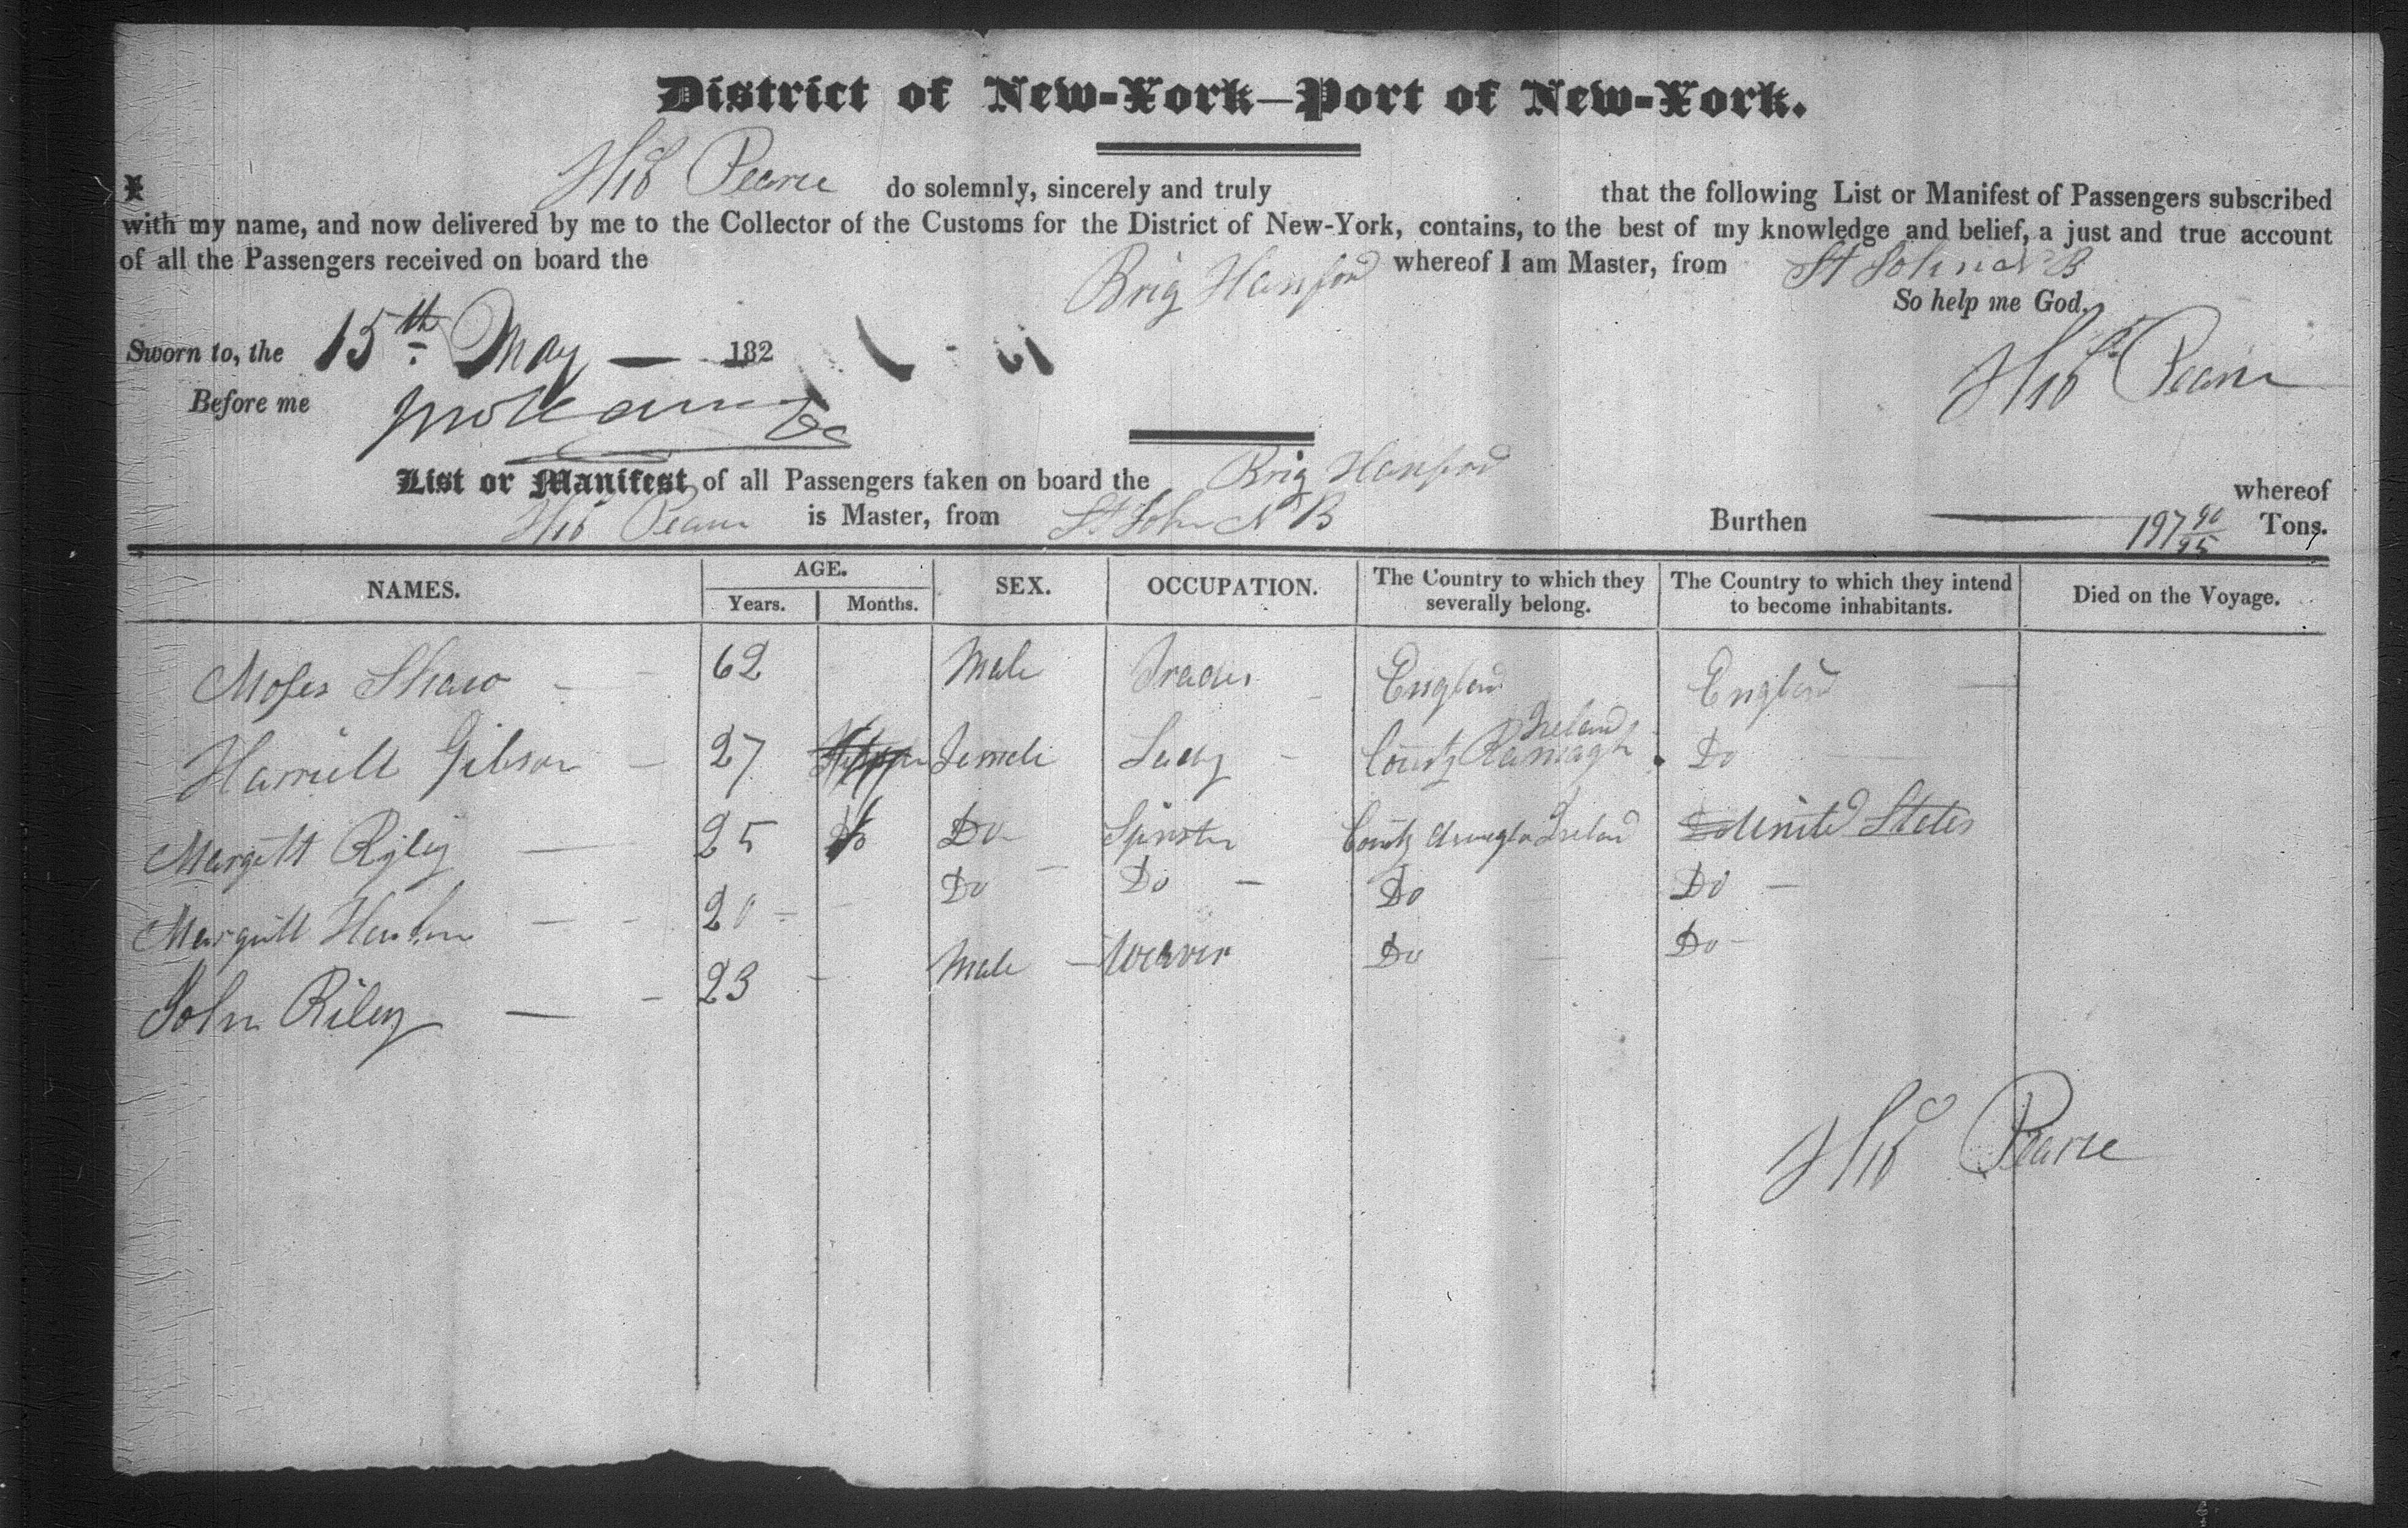 District of New-York—Port of New-York.
I Pearce do solemnly, sincerely and truly that the following List or Manifest of Passengers subscribed
with my name, and now delivered by me to the Collector of the Customs for the District of New-York, contains, to the best of my knowledge and belief, a just and true account
of all the Passengers received on board the Brig Hanford whereof I am Master, from St Johns NB
So help me God.
Sworn to, the 15th May — 182
Pearce
Before me
List or Manifest of all Passengers taken on board the Brig Hanford whereof
Pearce is Master, from St John NB Burthen 197 90/95 Tons.
NAMES. AGE. SEX. OCCUPATION. The Country to which they severally belong. The Country to which they intend to become inhabitants. Died on the Voyage.
Years. Months.
Moses Shaw 62 Male Trader England England
Harriett Gibson 27 Female Lady County Ireland Do
Margett Ryley 25 Do Do Spinster County Ireland Do United States
Margett 20 Do Do Do Do
John Riley 23 Male Weaver Do Do
Pearce